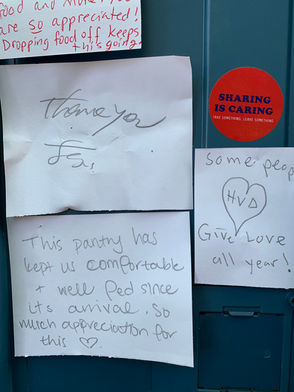 food and
are so appreciated!
Dropping food off keeps
this going.
Thank you
SHARING
IS CARING
TAKE SOMETHING, LEAVE SOMETHING
some peop
HVD
Give Love
all year!
This pantry has
kept us comfortable
+ well fed since
its arrival. So
much appreciation for
this ♡.